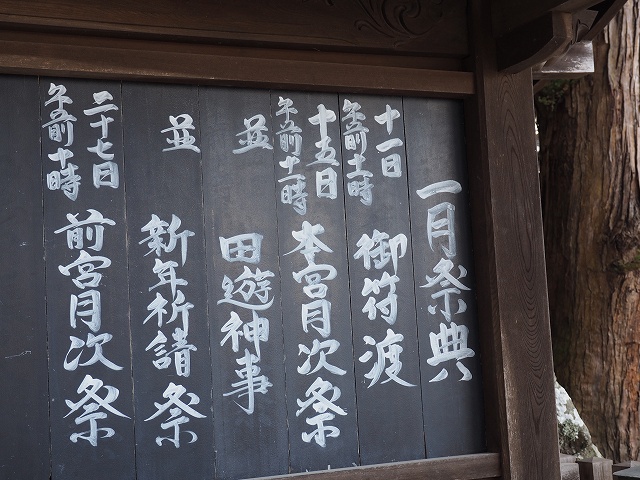 一月祭典
十一日
午前十時
御符渡
十五日
午前十一時
本宮月次祭
並
田遊神事
並
新年祈請祭
二十七日
午前十時
前宮月次祭